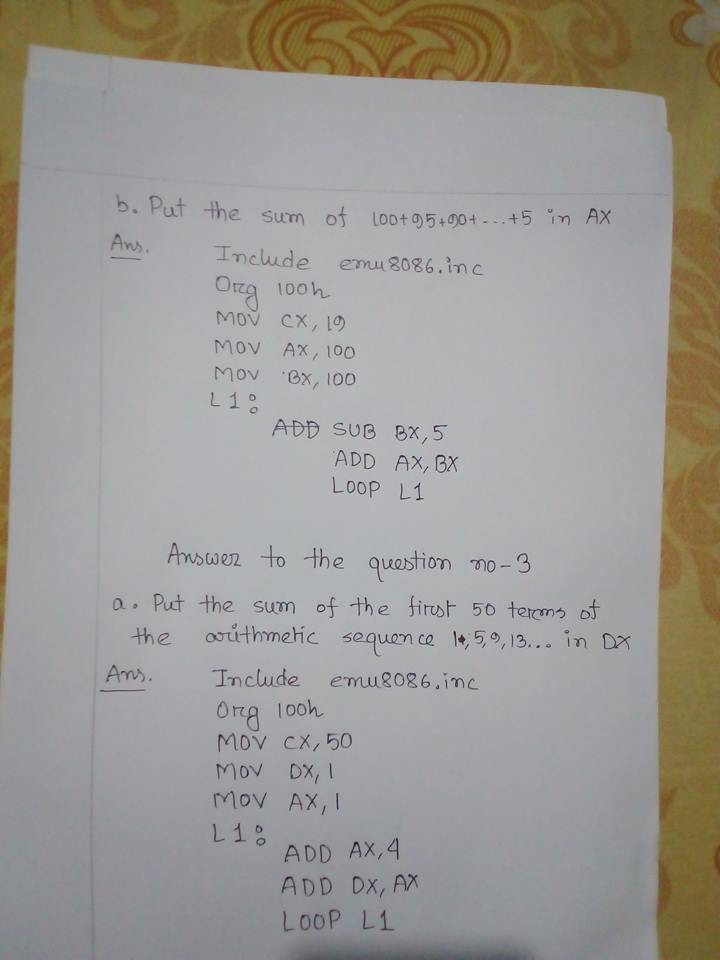 b. Put the sum of 100+95+90+...+5 in AX
Ans. Include emu8086.inc
Org 100h
MOV CX, 19
MOV AX, 100
MOV BX, 100
L1:
ADD SUB BX, 5
ADD AX, BX
LOOP L1
Answer to the question no-3
a. Put the sum of the first 50 terms of
the arithmetic sequence 1,5,9,13... in DX
Ans. Include emu8086.inc
Org 100h
MOV CX, 50
MOV DX, 1
MOV AX, 1
L1:
ADD AX, 4
ADD DX, AX
LOOP L1